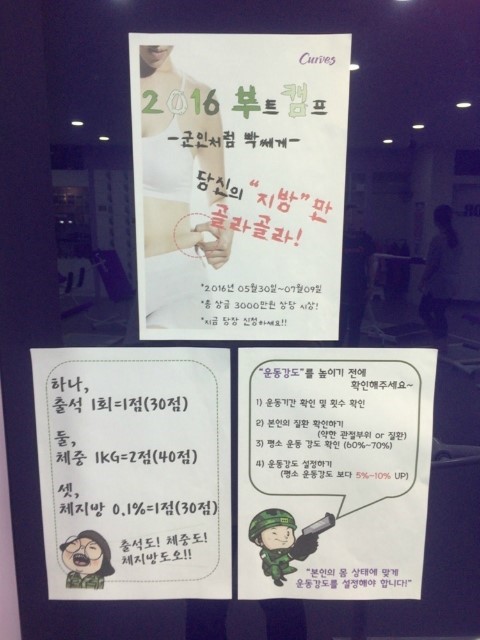 Curves
2016 부트캠프
-군인처럼 빡쎄게-
당신의 "지방"만
골라골라!
*2016년 05월30일~07월09일
*총 상금 3000만원 상당 시상!
*지금 당장 신청하세요!!
하나,
출석 1회=1점(30점)
둘,
체중 1KG=2점(40점)
셋,
체지방 0.1%=1점(30점)
출석도! 체중도!
체지방도오!!
"운동강도"를 높이기 전에
확인해주세요~
1) 운동기간 확인 및 횟수 확인
2) 본인의 질환 확인하기
(약한 관절부위 or 질환)
3) 평소 운동 강도 확인 (60%~70%)
4) 운동강도 설정하기
(평소 운동강도 보다 5%~10% UP)
"본인의 몸 상태에 맞게
운동강도를 설정해야 합니다!"